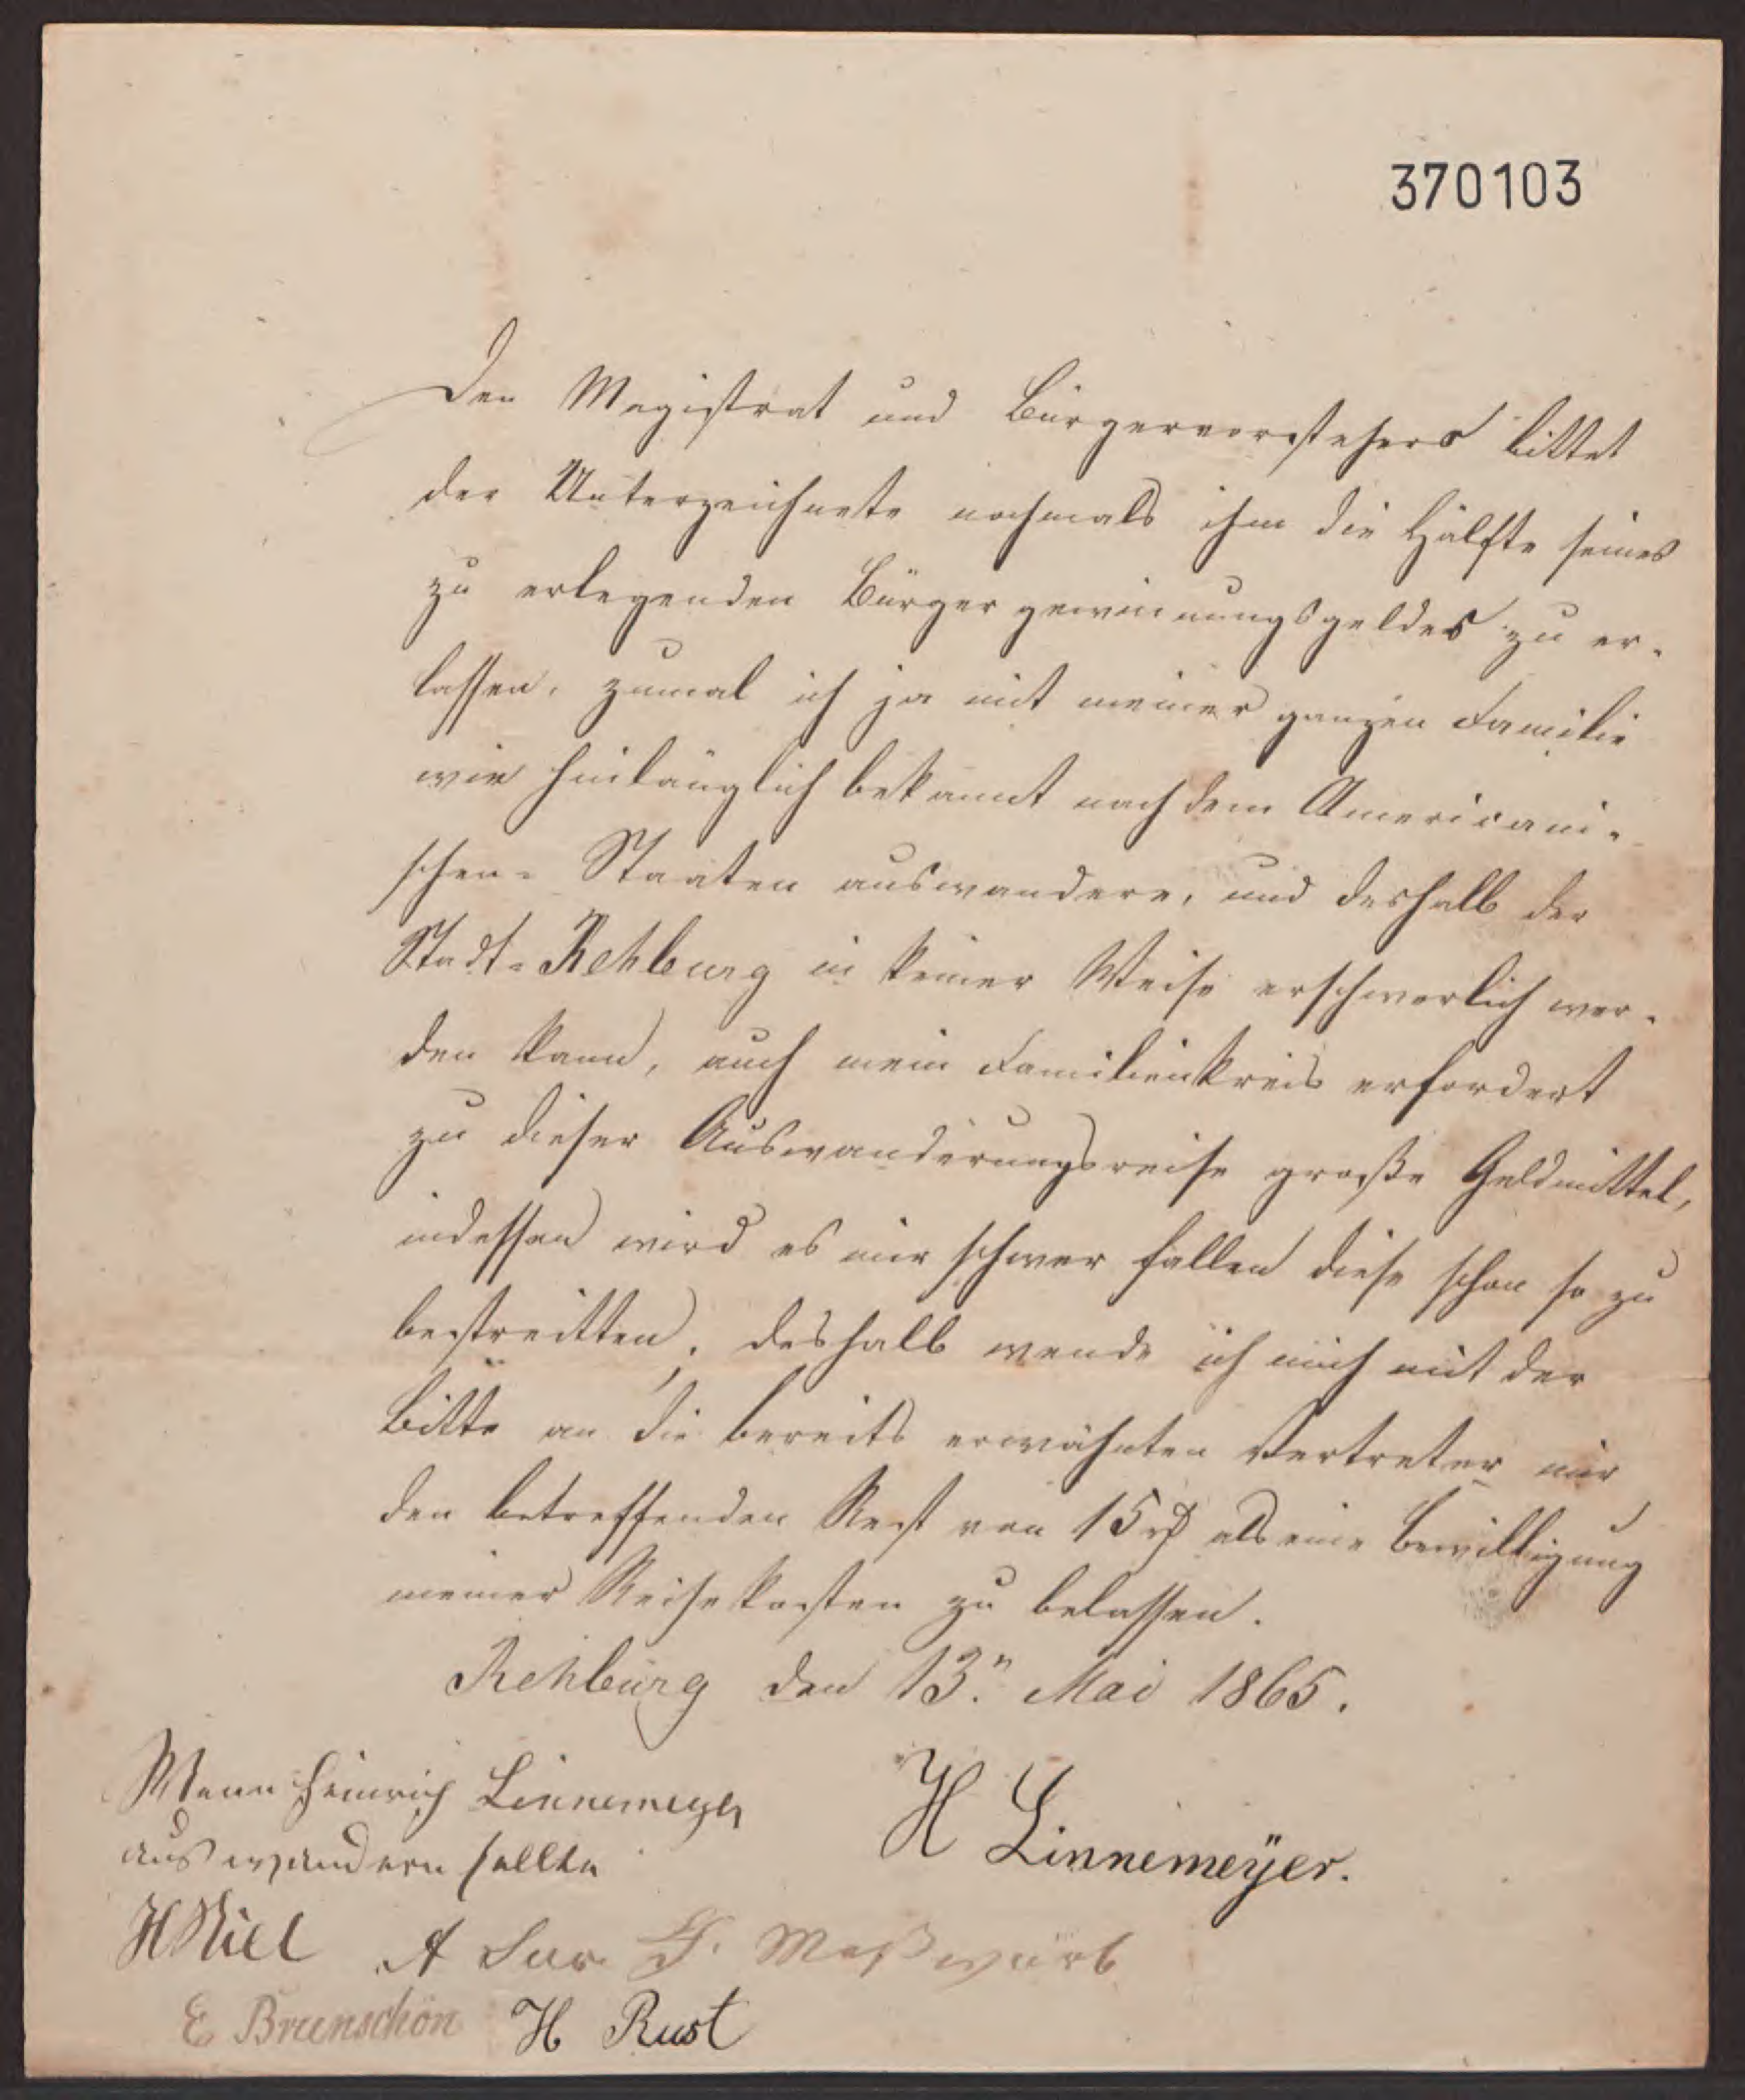 370103
Den Magistrat und Bürgervorstehers bittet
der Unterzeichnete nochmals ihm die Hälfte seines
zu erlegenden Bürgergewinnungsgeldes zu er-
lassen, zumal ich ja mit meiner ganzen Familie
wie hinlänglich bekannt nach dem Americani-
schen-Staaten auswandere, und deshalb der
Stadt-Rehburg in keiner Weise erschwerlich wer-
den kann, auch mein Familienkreis erfordert
zu dieser Auswanderungsreise große Geldmittel,
indessen wird es mir schwer fallen diese schon so zu
bestreitten, deshalb wende ich mich mit der
Bitte an die bereits erwähnten Vertreter mir
den betreffenden Rest von 15 rβ als eine Bewilligung
meiner Reisekosten zu belassen.
Rehburg den 13.n Mai 1865.
Wenn Heinrich Linnemeyer
auswandern sollte
H Linnemeyer.
A F. Meßwarb
E Brunschön H Rust